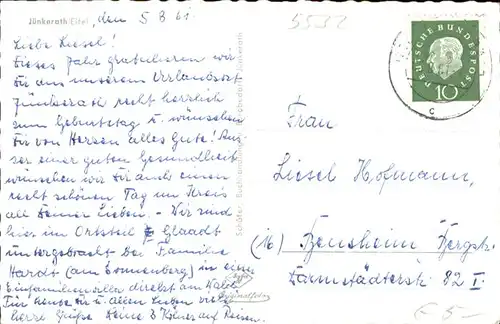 Jünkerath/Eifel, den 5 8 61.
5532
Liebe Liesel!
Dieses Jahr gratulieren wir
Dir aus unserem Urlaubsort
Jünkerath recht herzlich
zum Geburtstag u. wünschen
Dir von Herzen alles Gute! Aus-
ser einer guten Gesundheit
wünschen wir Dir auch einen
recht schönen Tag im Kreis
all Deiner Lieben. - Wir sind
hier im Ortsteil Glaadt
untergebracht bei Familie
Hardt (am Sonnenberg) in einem
Einfamilienvilla direkt am Wald.
Für heute Dir u. allen Lieben viele
herzl. Grüße Deine 3 Kölner auf Reisen.
DEUTSCHE BUNDESPOST
10
c
Frau
Liesel Hofmann,
(16) Bensheim Bergstr.
Darmstädterstr. 82 I.
€ 5-